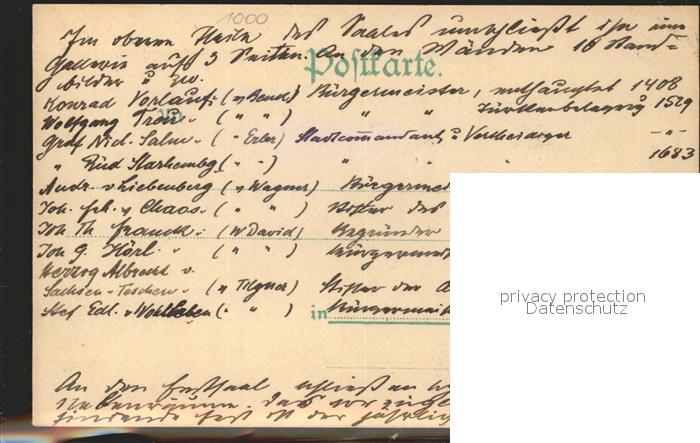 1000
Im oberen Theile des Saales umschließt ihn eine
Gallerie auf 3 Seiten. An den Wänden 16 Stand-
bilder u zw.
Postkarte.
Konrad Vorlauf: (v Bend) Bürgermeister, enthauptet 1408
Wolfgang Treu - ( " " ) " " Türkenbelagerg 1529
Graf Nicl. Salm - ( " Erler) Stadtcommandant u Vertheidiger - " -
" Rüd Starhembg ( " " ) " " 1683
Andr. v Liebenberg (v Wagner) Bürgermei
Joh. v Chaos - ( " " ) Stifter des
Joh Th Franck - (v David) Begründer
Joh G. Hörl - ( " " ) Bürgermeist
Herzog Albrecht v.
Sachsen-Teschen - (v Tilgner) Stifter der A
Stef Edl. v Wohlleben ( " " ) Bürgermeist
in
An den Festsaal schließen
Nebenräume. Das
findende Fest ist der jährlic
privacy protection
Datenschutz